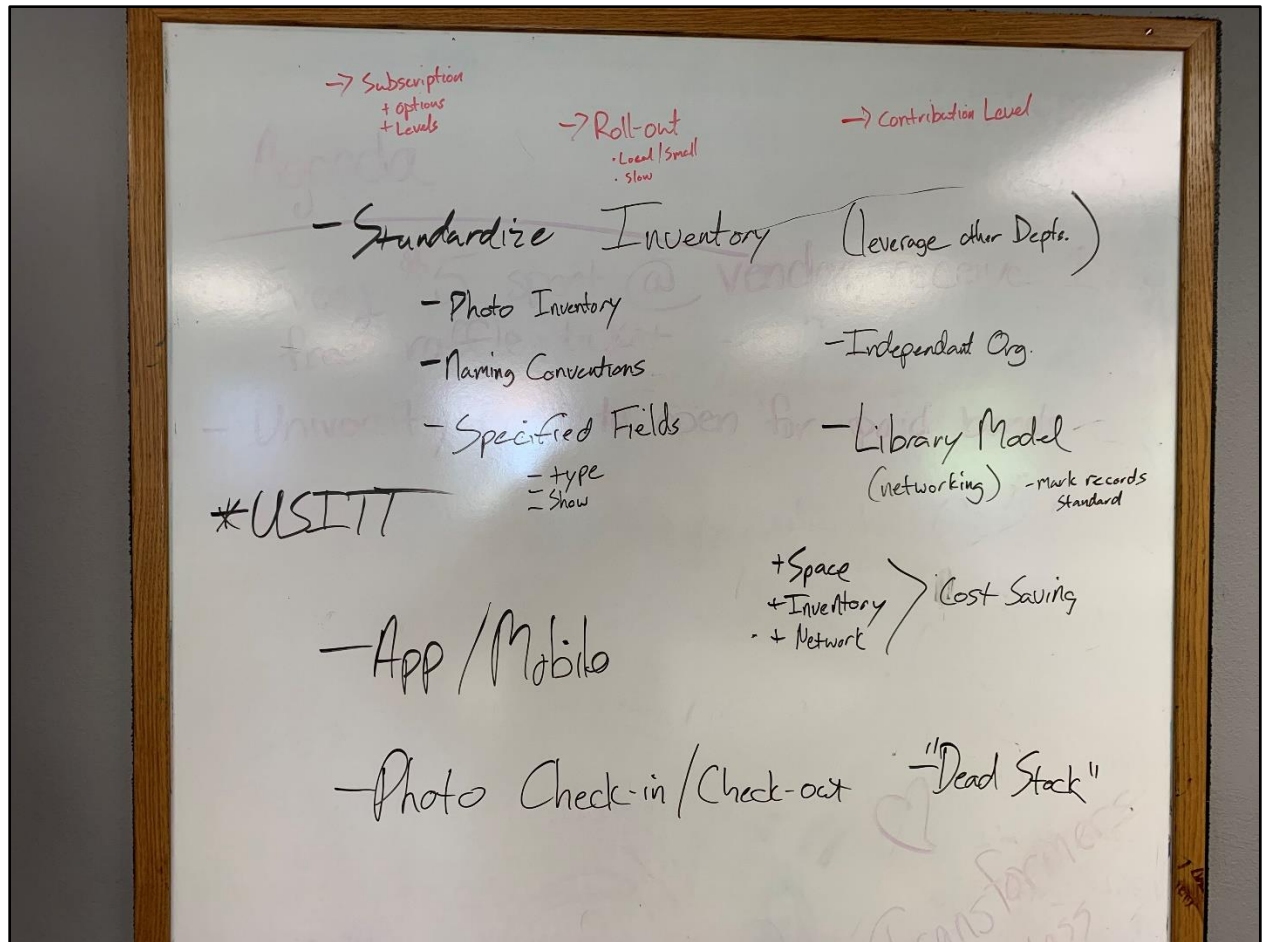 → Subscription
+ options
+ Levels
→ Roll-out
• Local/Small
• Slow
→ Contribution Level
- Standardize Inventory (leverage other Depts.)
- Photo Inventory
- Naming Conventions
- Specified Fields
- type
- Show
- Independant Org.
- Library Model
(networking) - mark records
Standard
*USITT
+ Space
+ Inventory
+ Network
Cost Saving
- App/Mobile
- Photo Check-in/Check-out
- "Dead Stock"
Agenda
Transformers